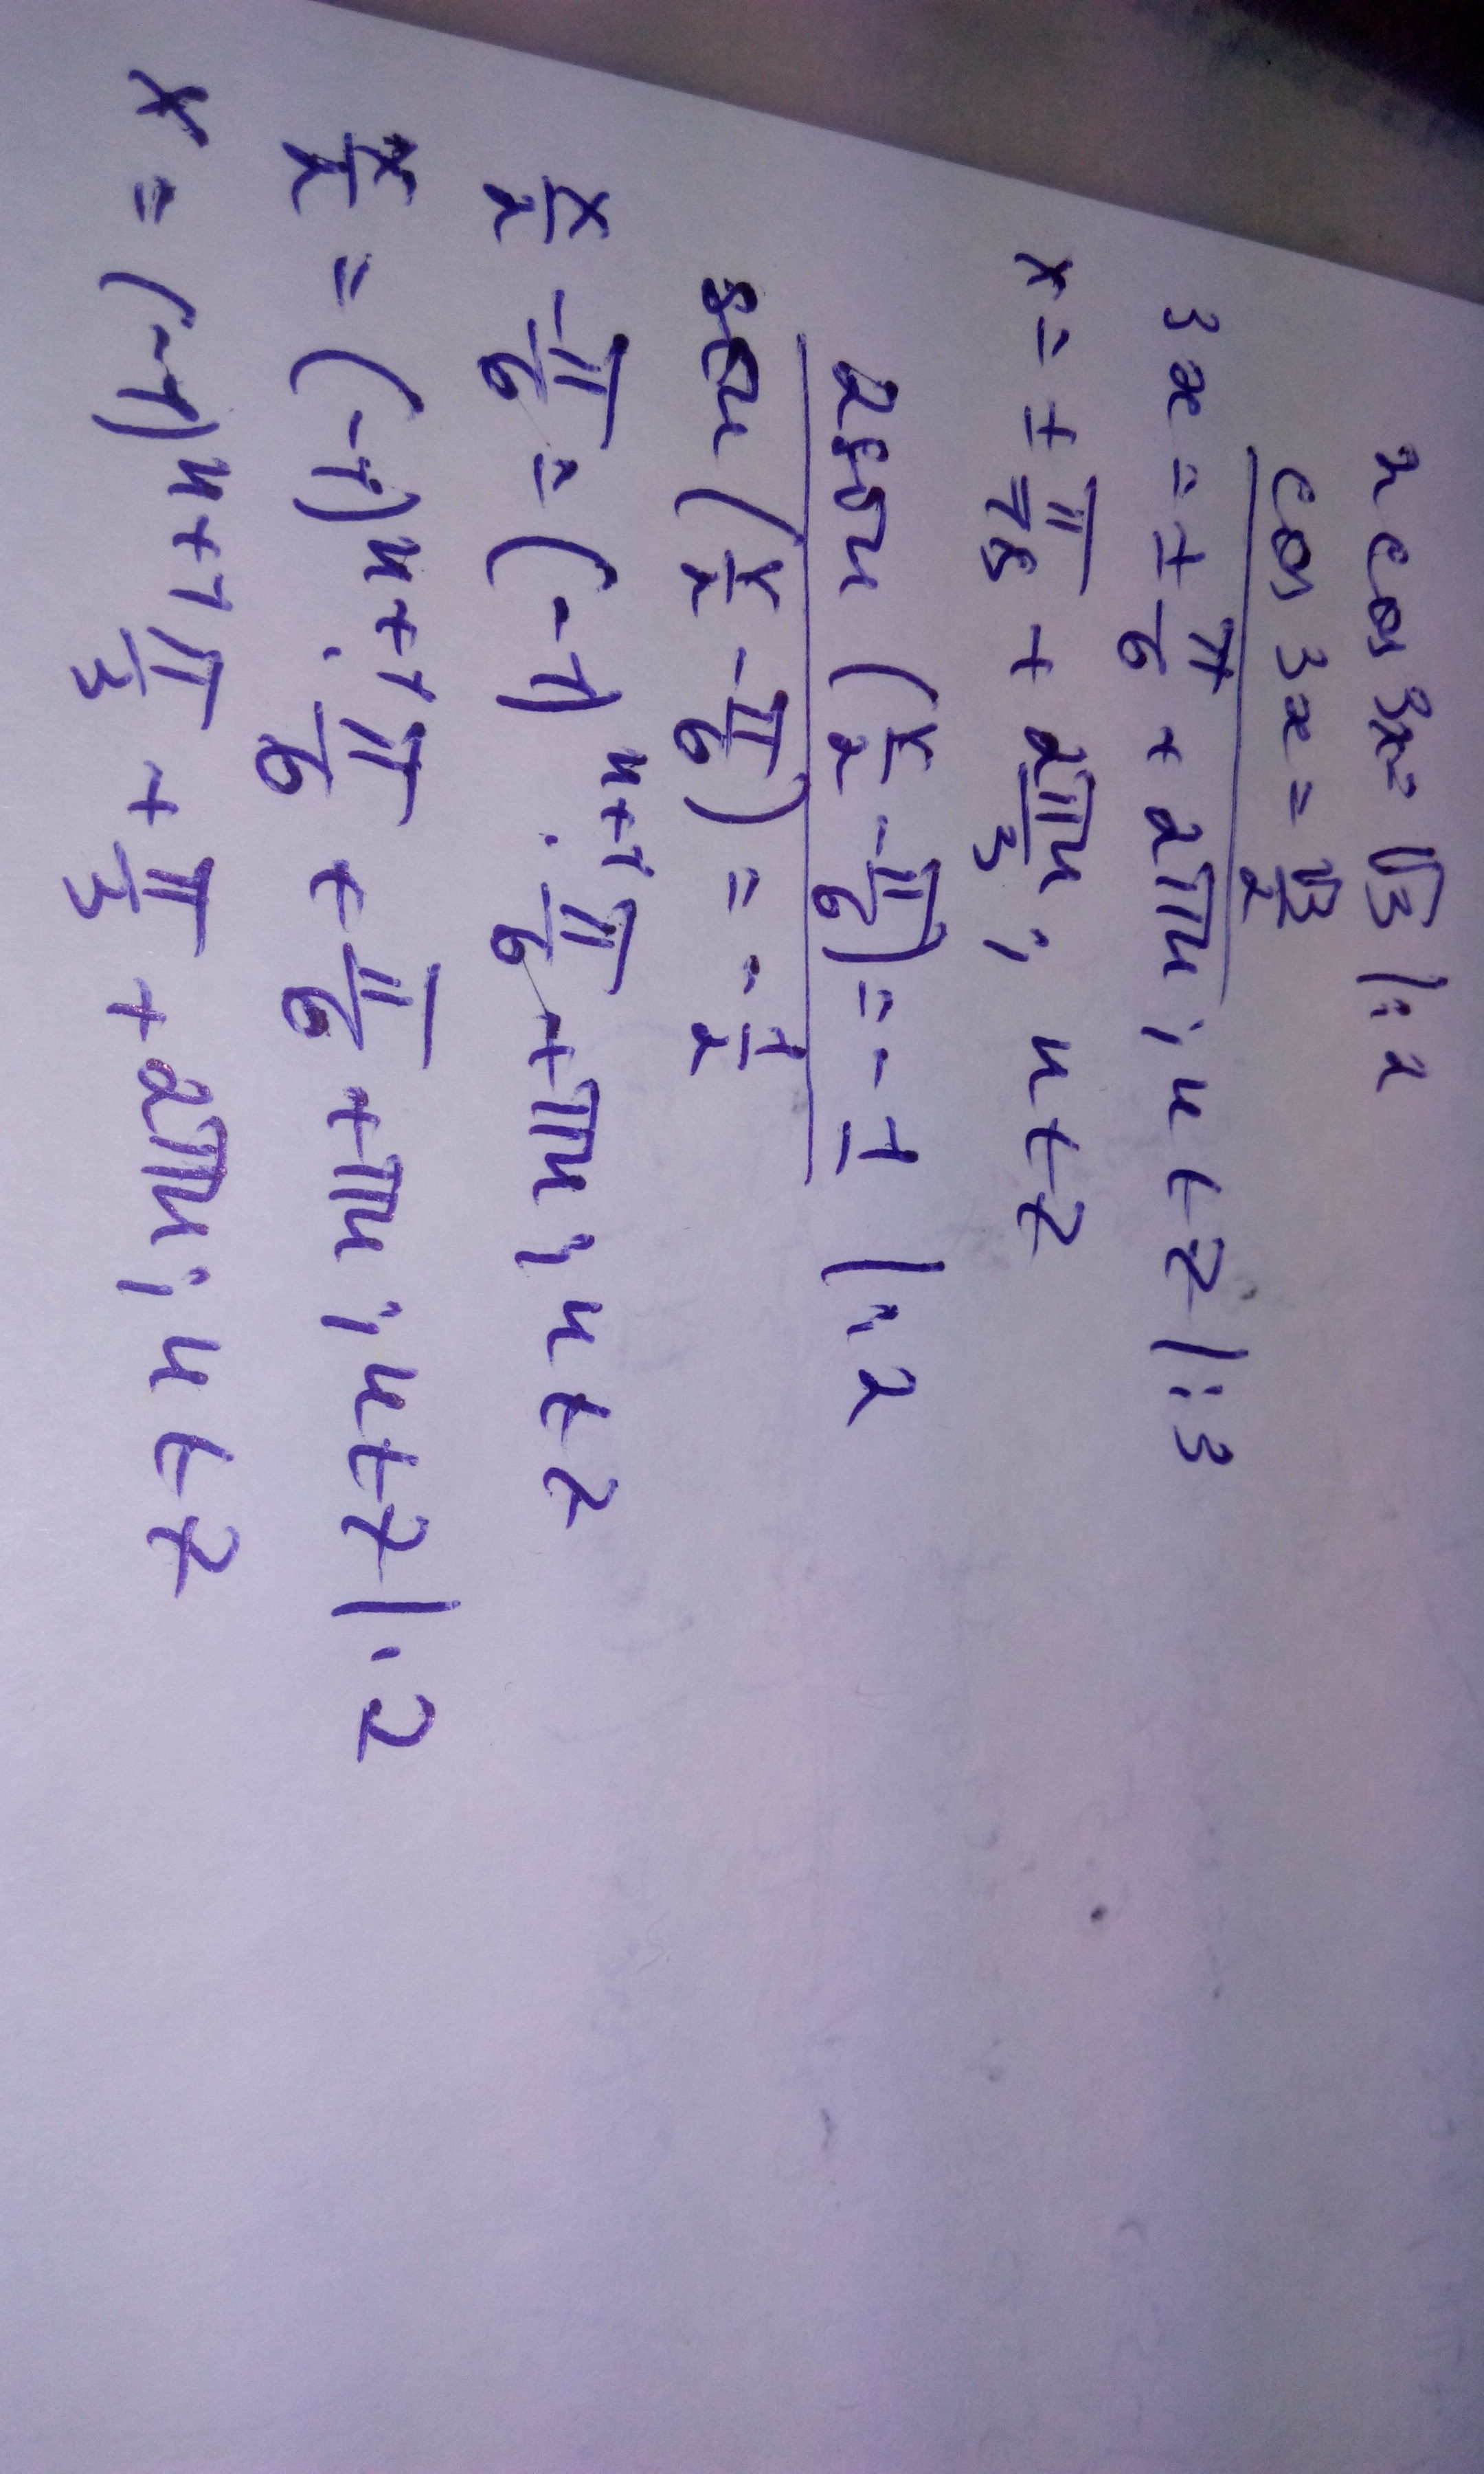 2 cos 3x = √3 |: 2
cos 3x = √3/2
3x = ± π/6 + 2πn; n ∈ Z |: 3
x = ± π/18 + 2πn/3; n ∈ Z
2 sin (x/2 - π/6) = - 1 |: 2
sin (x/2 - π/6) = - 1/2
x/2 - π/6 = (-1)ⁿ⁺¹ · π/6 + πn; n ∈ Z
x/2 = (-1)ⁿ⁺¹ · π/6 + π/6 + πn; n ∈ Z |· 2
x = (-1)ⁿ⁺¹ π/3 + π/3 + 2πn; n ∈ Z